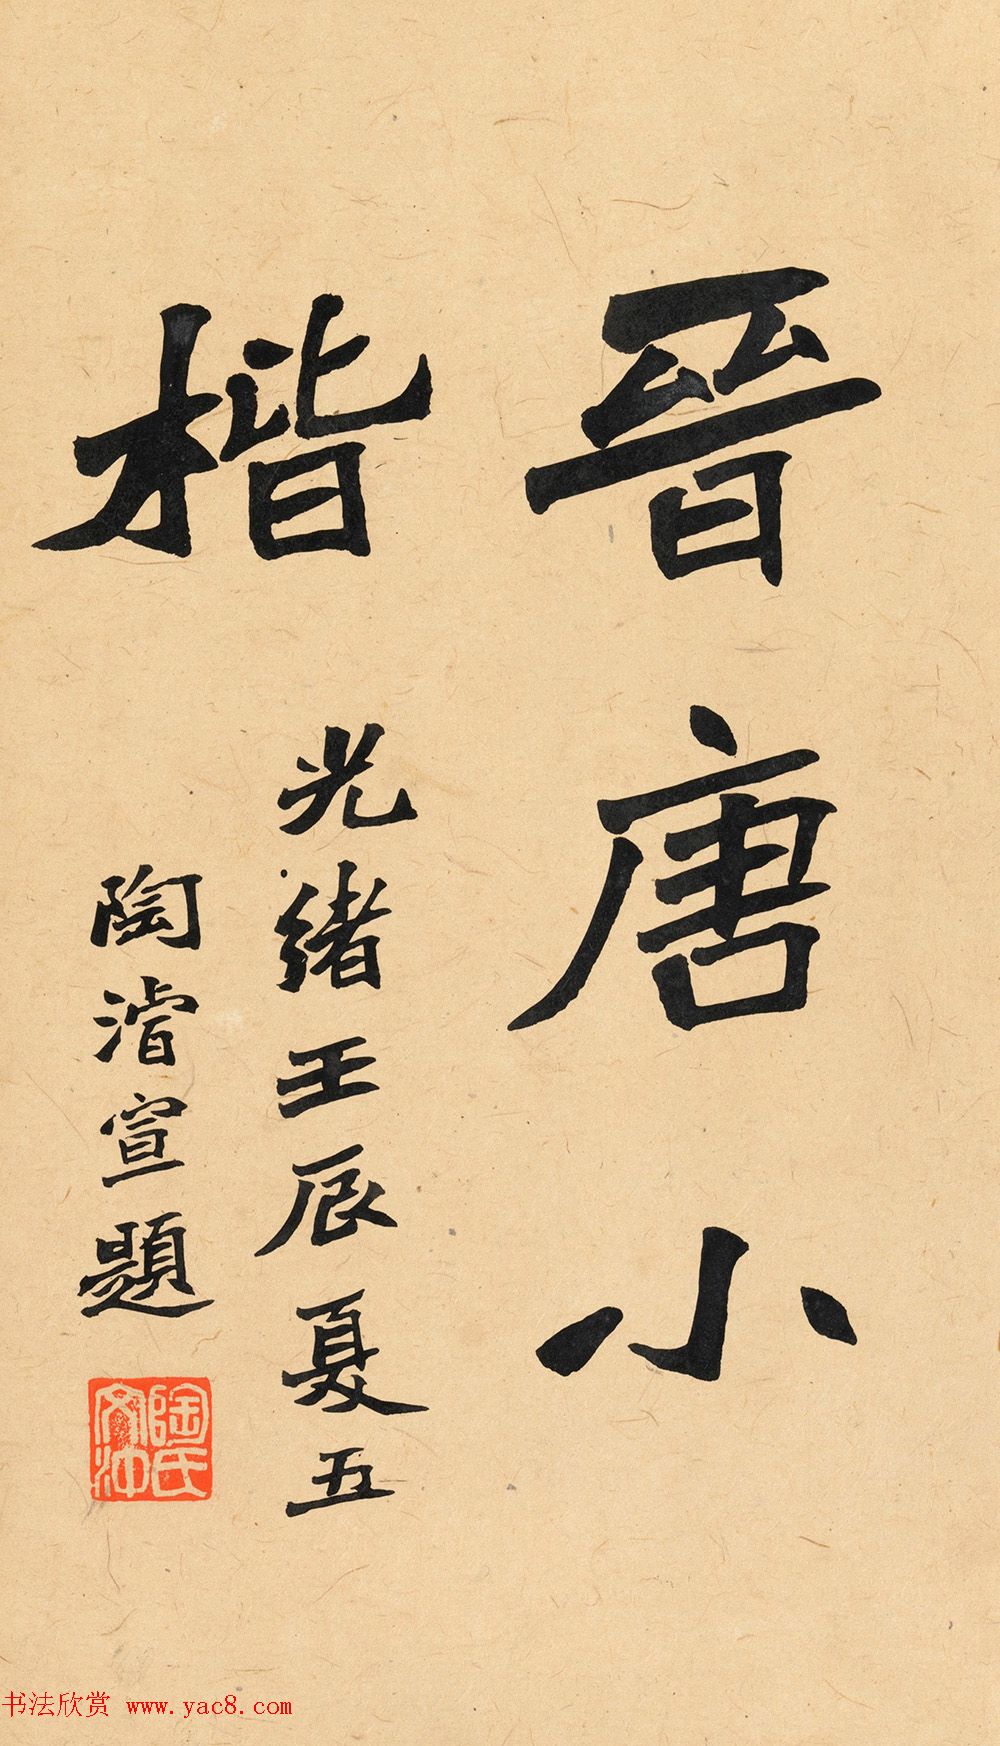 晉唐小
楷
光緒壬辰夏五
陶濬宣題
陶氏
文冲
书法欣赏 www.yac8.com